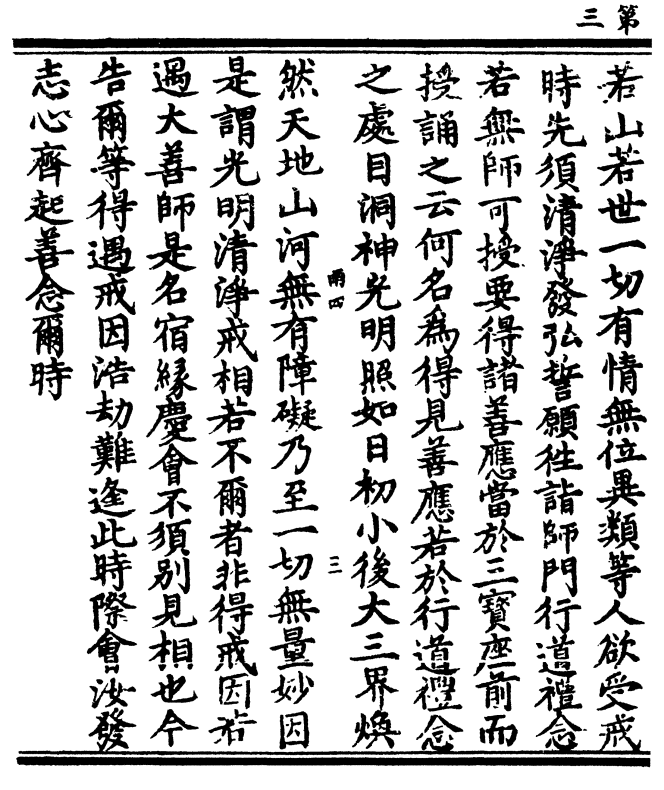 第三
若山若世一切有情無位異類等人欲受戒
時先須清淨發弘誓願往詣師門行道禮念
若無師可授要得諸善應當於三寶座前而
授誦之云何名為得見善應若於行道禮念
之處目洞神光明照如日初小後大三界煥
兩四 三
然天地山河無有障礙乃至一切無量妙因
是謂光明清淨戒相若不爾者非得戒因若
遇大善師是名宿緣慶會不須別見相也今
告爾等得遇戒因浩劫難逢此時際會汝發
志心齊起善念爾時